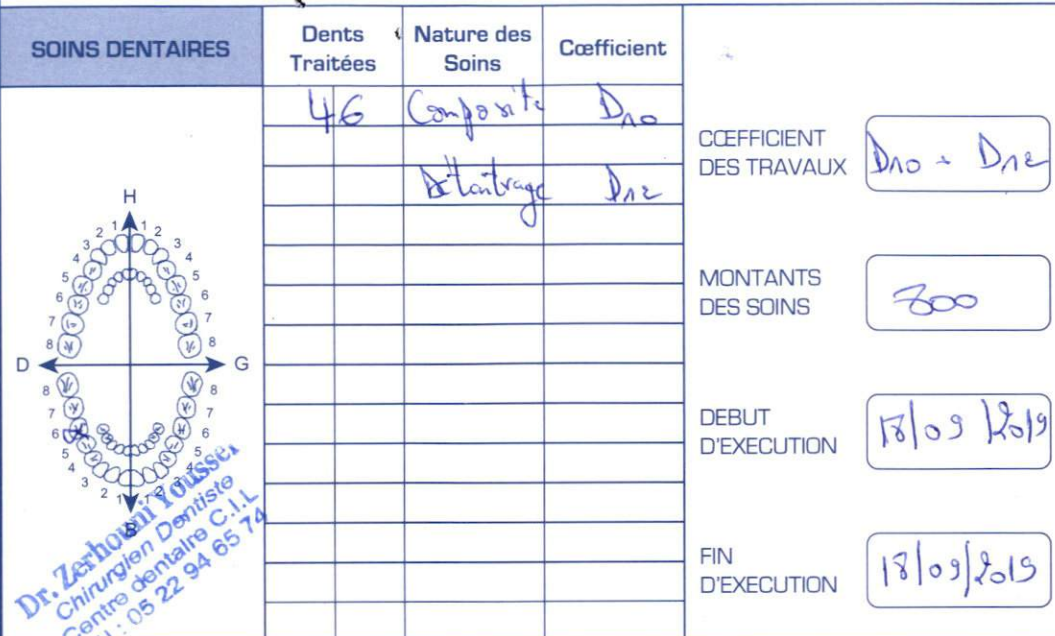 SOINS DENTAIRES
Dents Traitées
Nature des Soins
Cœfficient
46 Composite D10
Détartrage D12
CŒFFICIENT DES TRAVAUX
D10 + D12
MONTANTS DES SOINS
DEBUT D'EXECUTION
18/09/2019
FIN D'EXECUTION
18/09/2019
H
1 1
2 2
3 3
4 4
5 5
6 6
7 7
8 8
D G
8 8
7 7
6 6
5 5
4 4
3 3
2 2
1 1
B
Dr. Zerhouni Youssef
Chirurgien Dentiste
Centre dentaire C.I.L
: 05 22 94 65 74